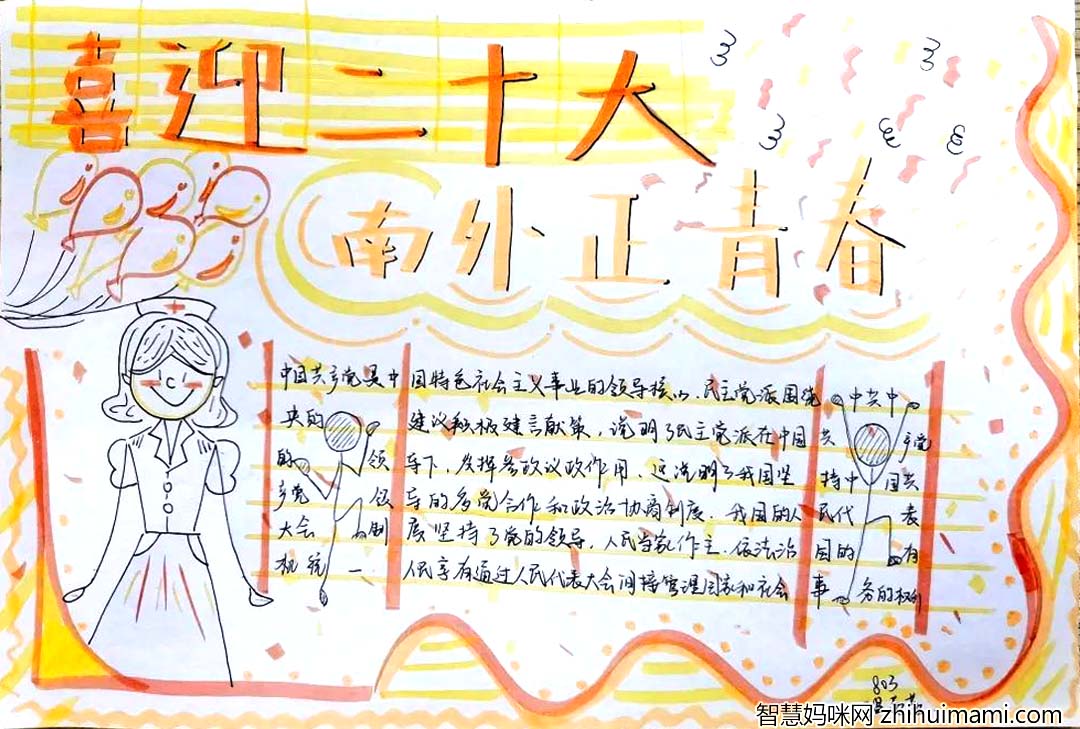 喜迎二十大
南外正青春
中国共产党是中国特色社会主义事业的领导核心,民主党派围绕中共中
央的 建议积极建言献策,说明了民主党派在中国共产党
的领导下,发挥参政议政作用。这说明了我国坚持中国共
产党领导的多党合作和政治协商制度。我国的人民代表
大会制度坚持了党的领导,人民当家作主,依法治国的有
机统一。人民享有通过人民代表大会间接管理国家和社会事务的权利
803
智慧妈咪网 zhihuimami.com